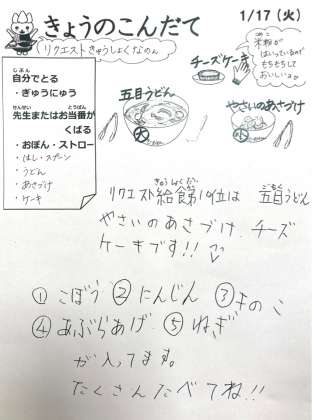 きょうのこんだて
1/17（火）
リクエストきゅうしょくなのん
じぶん
自分でとる
・ぎゅうにゅう
せんせい とうばん
先生またはお当番が
くばる
・おぼん・ストロー
・はし・スプーン
・うどん
・あさづけ
・ケーキ
チーズケーキ
米粉が
はいっているので
もちもちして
おいしいよ
五目うどん
大
やさいのあさづけ
小
きゅうしょくだい ごもく
リクエスト給食第10位は 五目うどん
やさいのあさづけ、チーズ
ケーキです!!
①ごぼう ②にんじん ③きのこ
④あぶらあげ ⑤ねぎ
が入ってます。
たくさんたべてね!!